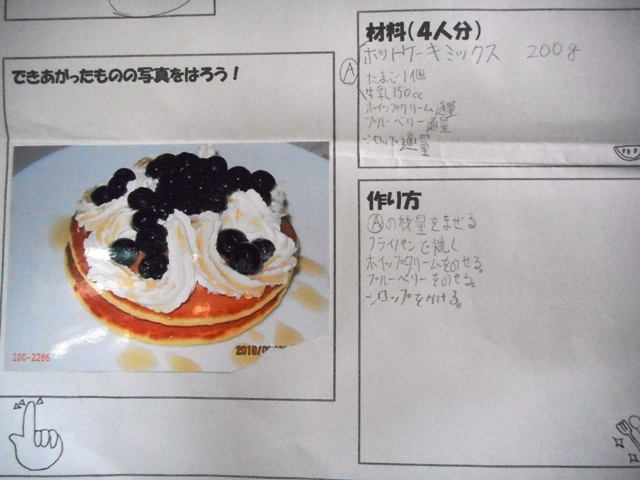 できあがったものの写真をはろう!
100-2286
材料(4人分)
ホットケーキミックス 200g
A
たまご1個
牛乳150cc
ホイップクリーム適量
ブルーベリー適量
シロップ適量
作り方
Aの材量をまぜる
フライパンで焼く
ホイップクリームをのせる。
ブルーベリーをのせる。
シロップをかける。